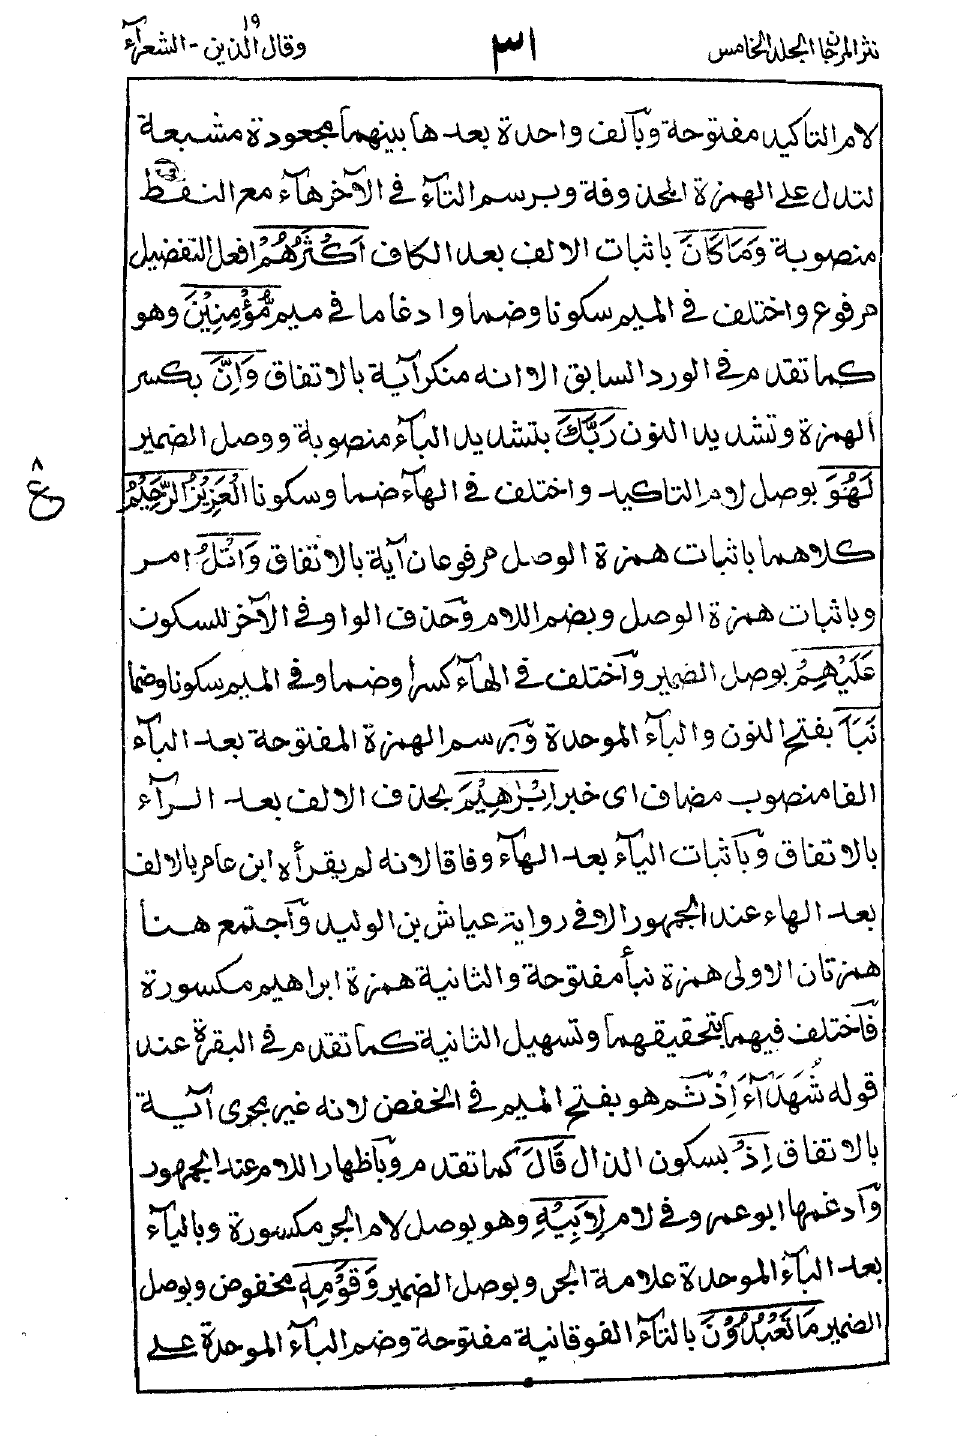 نثر المرجان المجلد الخامس
٣١
وقال الذين ١٩ - الشعرآء
لام التاكيد مفتوحة وبآلف واحدة بعدها بينهما مجعودة مشبعة
لتدل على الهمزة المحذوفة وبرسم التآء في الآخر هآء مع النقط
منصوبة وَمَا كَانَ باثبات الالف بعد الكاف اَكْثَرُهُمْ افعل التفضيل
مرفوع واختلف في الميم سكونا وضما وادغاما في ميم مُّؤْمِنِيْنَ وهو
كما تقدم في الورد السابق الا انه منكر آية بالاتفاق وَاِنَّ بكسر
الهمزة وتشديد النون رَبَّكَ بتشديد البآء منصوبة ووصل الضمير
لَهُوَ بوصل لام التاكيد واختلف في الهآء ضما وسكونا الْعَزِيْزُ الرَّحِيْمُ
ع ٨
كلاهما باثبات همزة الوصل مرفوعان آية بالاتفاق وَاتْلُ امر
وباثبات همزة الوصل وبضم اللام وحذف الواو في الآخر للسكون
عَلَيْهِمْ بوصل الضمير وآختلف في الهآء كسرا وضما وفي الميم سكونا وضما
نَبَاَ بفتح النون والبآء الموحدة وبرسم الهمزة المفتوحة بعد البآء
الفا منصوب مضاف اى خبر اِبْرٰهِيْمَ بحذف الالف بعد الرآء
بالاتفاق وبآثبات اليآء بعد الهآء وفاقا لانه لم يقرأه ابن عامر بالالف
بعد الهاء عند الجمهور الا في رواية عياش بن الوليد وآجتمع هنا
همزتان الاولى همزة نبأ مفتوحة والثانية همزة ابراهيم مكسورة
فآختلف فيهما بتحقيقهما وتسهيل الثانية كما تقدم في البقرة عند
قوله شُهَدَآءَ اِذْ ثم هو بفتح الميم في الخفض لانه غير مجرى آية
بالاتفاق اِذْ بسكون الذال قَالَ كما تقدم وبآظهار اللام عند الجمهور
وآدغمها ابو عمرو في لام لِاَبِيْهِ وهو بوصل لام الجر مكسورة وباليآء
بعد البآء الموحدة علامة الجر وبوصل الضمير وَقَوْمِهٖ مخفوض وبوصل
الضمير مَا تَعْبُدُوْنَ بالتآء الفوقانية مفتوحة وضم البآء الموحدة على